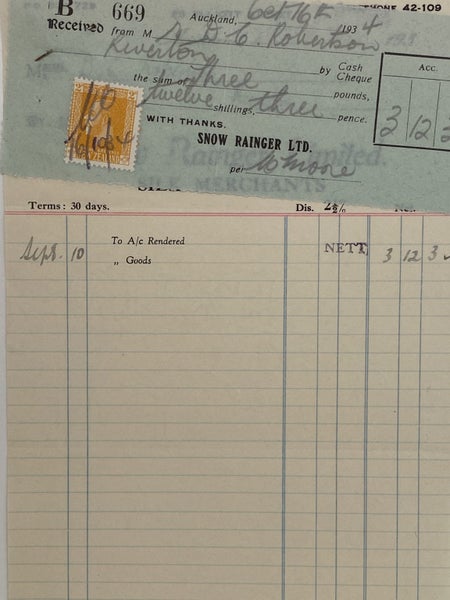 PHONE 42-109
B 669
Auckland, Oct 16th 1934
Received from M D. C. Robertson
Riverton by Cash
Cheque
the sum of Three pounds,
twelve shillings, three pence.
Acc.
3 12
WITH THANKS.
SNOW RAINGER LTD.
per
16/10/34
Rainger Limited.
SILK MERCHANTS
Terms: 30 days. Dis. 2½%
Sept. 10 To A/c Rendered
„ Goods NETT, 3 12 3